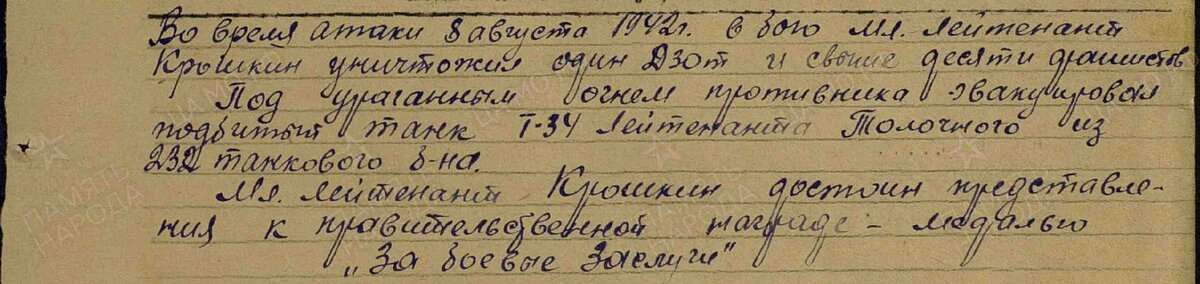 Во время атаки 8 августа 1942г. в бою Мл. Лейтенант
Крошкин уничтожил один Дзот и свыше десяти фашистов
Под ураганным огнем противника эвакуировал
подбитый танк Т-34 Лейтенанта Толочного из
232 танкового б-на.
Мл. Лейтенант Крошкин достоин представле-
ния к правительственной награде - медалью
„За боевые Заслуги"
ПАМЯТЬ
НАРОДА